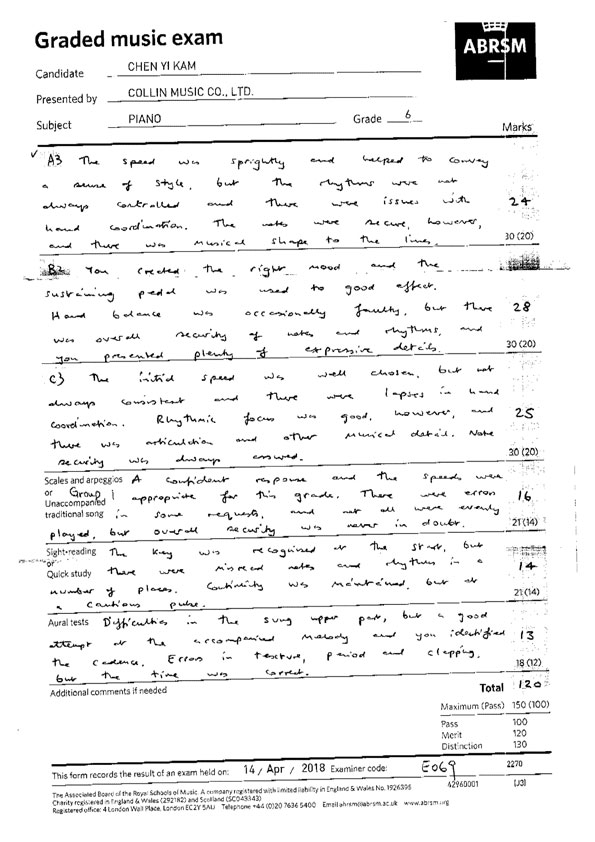 Graded music exam
ABRSM
Candidate CHEN YI KAM
Presented by COLLIN MUSIC CO., LTD.
Subject PIANO Grade 6
Marks
A3 The speed was sprightly and helped to convey
a sense of style, but the rhythms were not
always controlled and there were issues with 24
hand coordination. The notes were secure, however,
and there was musical shape to the lines. 30 (20)
B2 You created the right mood and the
sustaining pedal was used to good effect.
Hand balance was occasionally faulty, but there 28
was overall security of notes and rhythms, and
you presented plenty of expressive details. 30 (20)
C3 The initial speed was well chosen, but not
always consistent and there were lapses in hand
coordination. Rhythmic focus was good, however, and 25
there was articulation and other musical detail. Note
security was always assured. 30 (20)
Scales and arpeggios A confident response and the speeds were
or Group 1 appropriate for this grade. There were errors 16
Unaccompanied
traditional song in some requests, and not all were evenly
played, but overall security was never in doubt. 21 (14)
Sight-reading The key was recognised at the start, but
or
Quick study there were misread notes and rhythms in a 14
number of places. Continuity was maintained, but at
a cautious pulse. 21 (14)
Aural tests Difficulties in the sung upper part, but a good
attempt at the accompanied melody and you identified 13
the cadence. Errors in texture, period and clapping,
but the time was correct. 18 (12)
Additional comments if needed Total 120
Maximum (Pass) 150 (100)
Pass 100
Merit 120
Distinction 130
This form records the result of an exam held on: 14/Apr/2018 Examiner code: E069 2270
42960001 (J3)
The Associated Board of the Royal Schools of Music. A company registered with limited liability in England & Wales No. 1926395
Charity registered in England & Wales (292182) and Scotland (SC043343)
Registered office: 4 London Wall Place, London EC2Y 5AU Telephone +44 (0)20 7636 5400 Email abrsm@abrsm.ac.uk www.abrsm.org